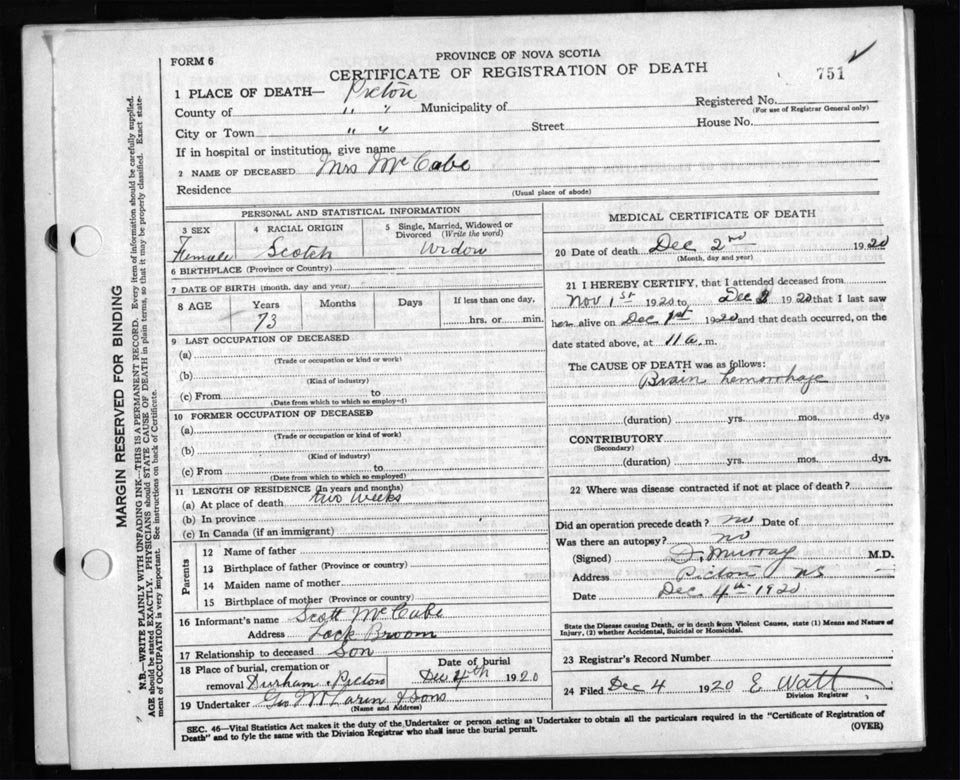 FORM 6
PROVINCE OF NOVA SCOTIA
CERTIFICATE OF REGISTRATION OF DEATH
751
1 PLACE OF DEATH— Pictou
County of " " Municipality of Registered No.
(For use of Registrar General only)
City or Town " " Street House No.
If in hospital or institution, give name
2 NAME OF DECEASED Mrs McCabe
Residence
(Usual place of abode)
PERSONAL AND STATISTICAL INFORMATION
3 SEX 4 RACIAL ORIGIN 5 Single, Married, Widowed or Divorced (Write the word)
Female Scotch Widow
6 BIRTHPLACE (Province or Country)
7 DATE OF BIRTH (month, day and year)
8 AGE Years Months Days If less than one day,
73 hrs. or min.
9 LAST OCCUPATION OF DECEASED
(a)
(Trade or occupation or kind or work)
(b)
(Kind of industry)
(c) From to
(Date from which to which so employed)
10 FORMER OCCUPATION OF DECEASED
(a)
(Trade or occupation or kind of work)
(b)
(Kind of industry)
(c) From to
(Date from which to which so employed)
11 LENGTH OF RESIDENCE (In years and months)
(a) At place of death two weeks
(b) In province
(c) In Canada (if an immigrant)
Parents
12 Name of father
13 Birthplace of father (Province or country)
14 Maiden name of mother
15 Birthplace of mother (Province or country)
16 Informant's name Scott McCabe
Address Lock Broom
17 Relationship to deceased Son
18 Place of burial, cremation or removal Durham Pictou
Date of burial
Dec 4th 1920
19 Undertaker Geo McLaren & Sons
(Name and Address)
MEDICAL CERTIFICATE OF DEATH
20 Date of death Dec 2nd 1920
(Month, day and year)
21 I HEREBY CERTIFY, that I attended deceased from
Nov 1st 1920 to Dec 2 1920 that I last saw
her alive on Dec 1st 1920 and that death occurred, on the
date stated above, at 11 a. m.
The CAUSE OF DEATH was as follows:
Brain hemorrhage
(duration) yrs. mos. dys
CONTRIBUTORY
(Secondary)
(duration) yrs. mos. dys.
22 Where was disease contracted if not at place of death?
Did an operation precede death? no Date of
Was there an autopsy? no
(Signed) Murray M.D.
Address Pictou NS
Date Dec. 4th 1920
State the Disease causing Death, or in death from Violent Causes, state (1) Means and Nature of
Injury, (2) whether Accidental, Suicidal or Homicidal.
23 Registrar's Record Number
24 Filed Dec 4 1920 E Watt
Division Registrar
SEC. 46—Vital Statistics Act makes it the duty of the Undertaker or person acting as Undertaker to obtain all the particulars required in the "Certificate of Registration of
Death" and to fyle the same with the Division Registrar who shall issue the burial permit.
(OVER)
MARGIN RESERVED FOR BINDING
N.B.—WRITE PLAINLY WITH UNFADING INK—THIS IS A PERMANENT RECORD. Every item of information should be carefully supplied.
AGE should be stated EXACTLY. PHYSICIANS should STATE CAUSE OF DEATH in plain terms, so that it may be properly classified. Exact state-
ment of OCCUPATION is very important. See instructions on back of Certificate.